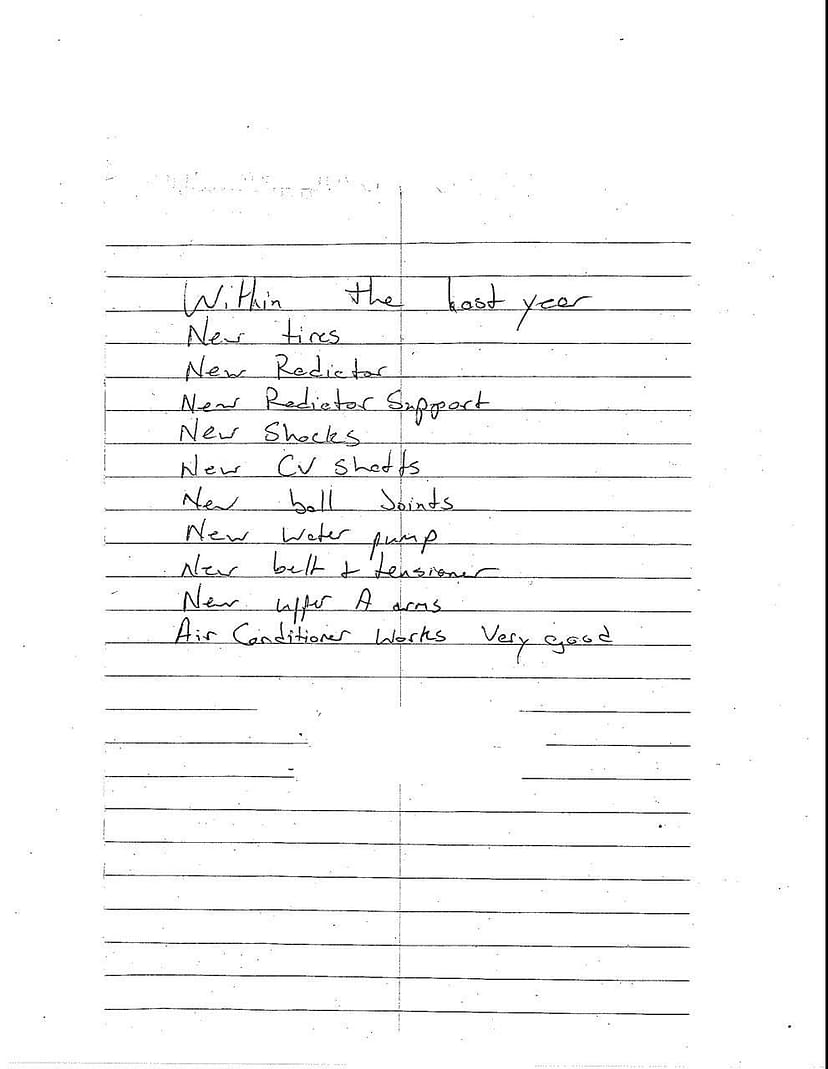 Within the last year
New tires
New Redictor
New Redictor Support
New Shocks
New CV shafts
New ball Joints
New water pump
New belt + tensioner
New upper A arms
Air Conditioner Works Very good